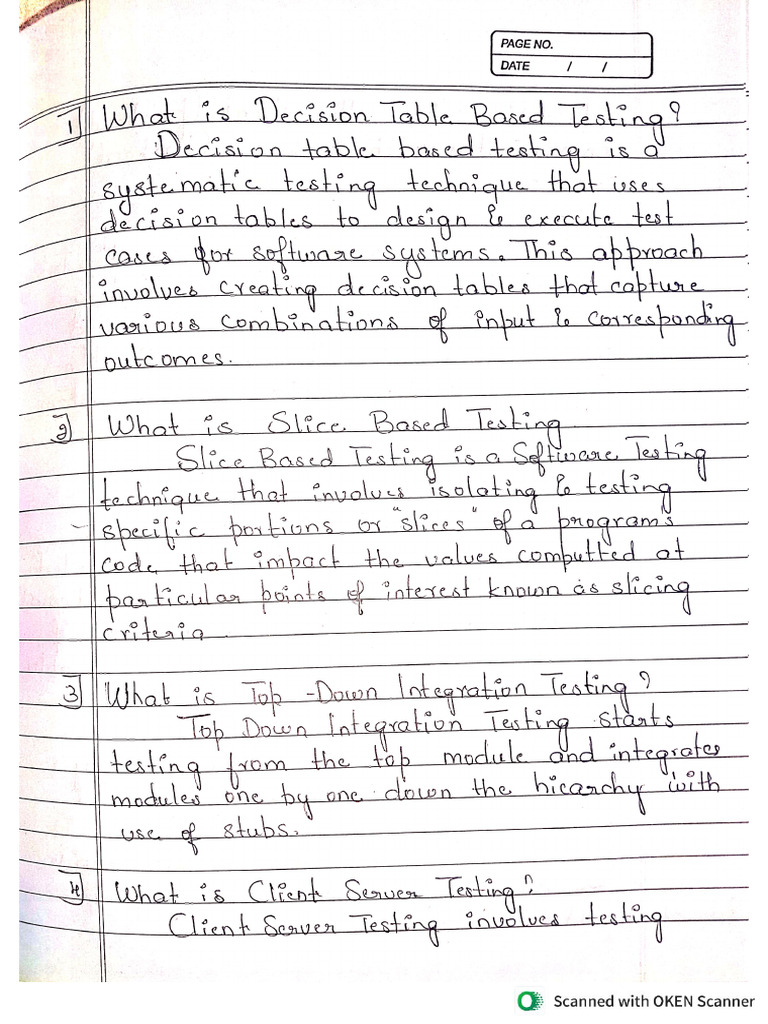 PAGE NO.
DATE / /
1] What is Decision Table Based Testing?
Decision table based testing is a
systematic testing technique that uses
decision tables to design & execute test
cases for software systems. This approach
involves creating decision tables that capture
various combinations of input & corresponding
outcomes.
2] What is Slice Based Testing
Slice Based Testing is a Software Testing
technique that involves isolating & testing
specific portions or "slices" of a program's
code that impact the values computted at
particular points of interest known as slicing
criteria
3] What is Top-Down Integration Testing?
Top Down Integration Testing starts
testing from the top module and integrates
modules one by one down the hicarchy with
use of stubs.
4] What is Client Server Testing?
Client Server Testing involves testing
Scanned with OKEN Scanner